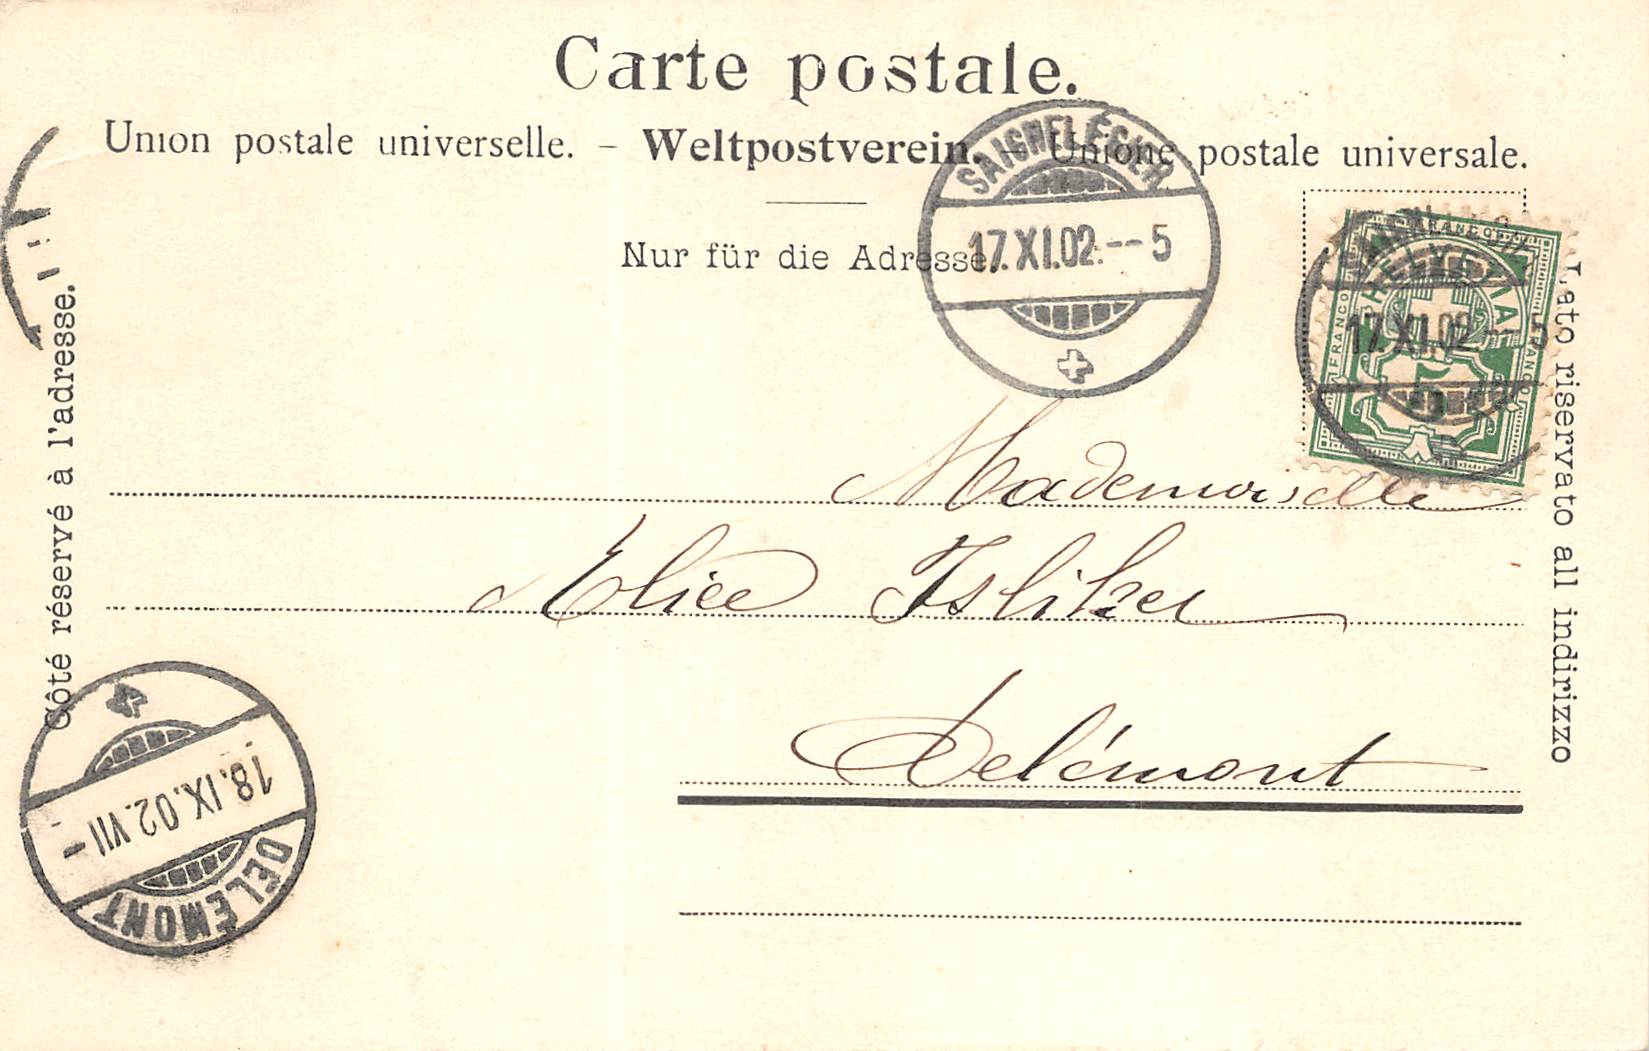 Carte postale.
Union postale universelle. – Weltpostverein. – Unione postale universale.
Nur für die Adresse.
Côté réservé à l'adresse.
Lato riservato all indirizzo
SAIGNELÉGIER
17.XI.02.--5
FRANCO
HELVETIA
FRANCO
FRANCO
17.XI.02.--5
5
Mademoiselle
Elice Isliker
Delémont
18.IX.02.VII-
DELÉMONT